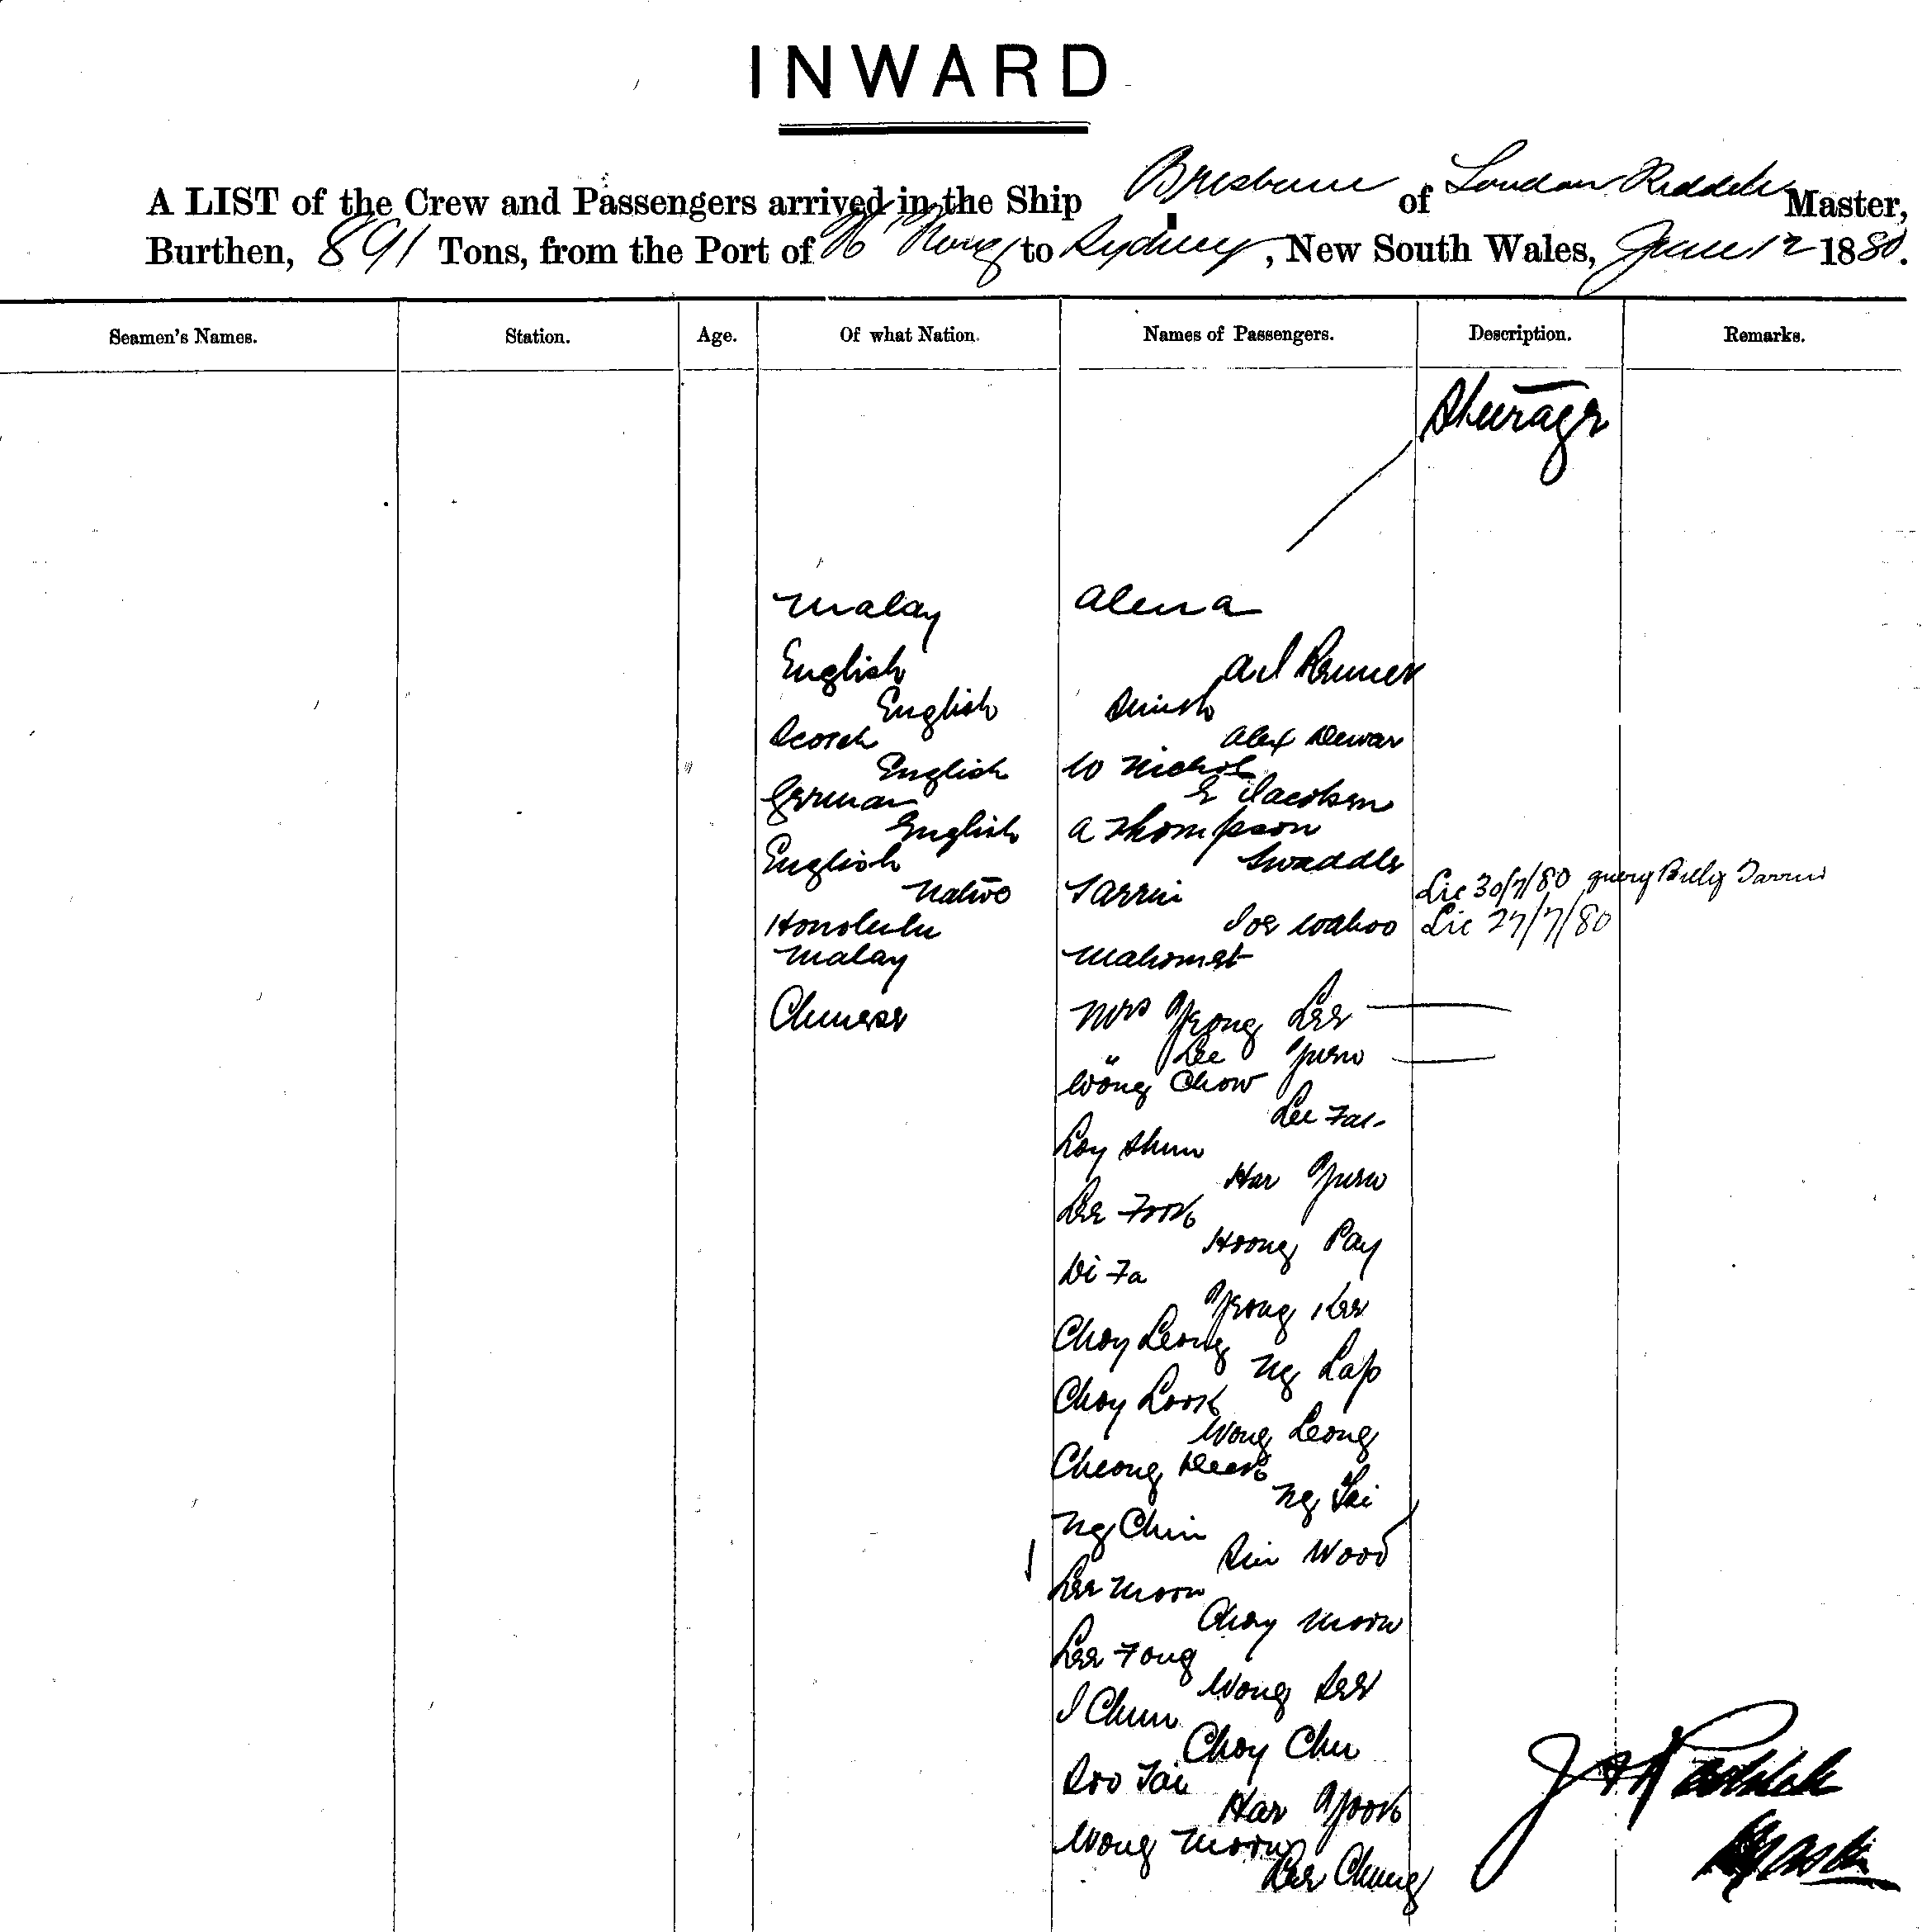 INWARD
A LIST of the Crew and Passengers arrived in the Ship Brisbane of London Reddell Master,
Burthen, 891 Tons, from the Port of H Kong to Sydney, New South Wales, June 12 1880.
Seamen's Names. Station. Age. Of what Nation. Names of Passengers. Description. Remarks.
Steerage
Malay
English A J
English Smith
Scotch Alex Dewar
English W Nichol
German E Jacobsen
English A Thompson
English Swaddle
Native Tarrin Lic 30/7/80 query Billy Tarrin
Honolulu Joe Wahoo Lic 27/7/80
Malay Mahomet
Chinese Mrs Yeong Lee
" Lee Yuen
Wong Chow
Lee Fat
Loy Shun
Har Yuen
Lee Fook
Hoong Pay
Di Fa
Yeong Kee
Choy Leong
Ng Lap
Choy Look
Wong Leong
Cheong
Ng Tai
Ng Chin
Sin Wood
Lee Moon
Choy Moon
Lee Fong
Wong See
I Chun
Choy Chu
Soo Tai
Har Yook
Wong Moon
Lee Chung
Master